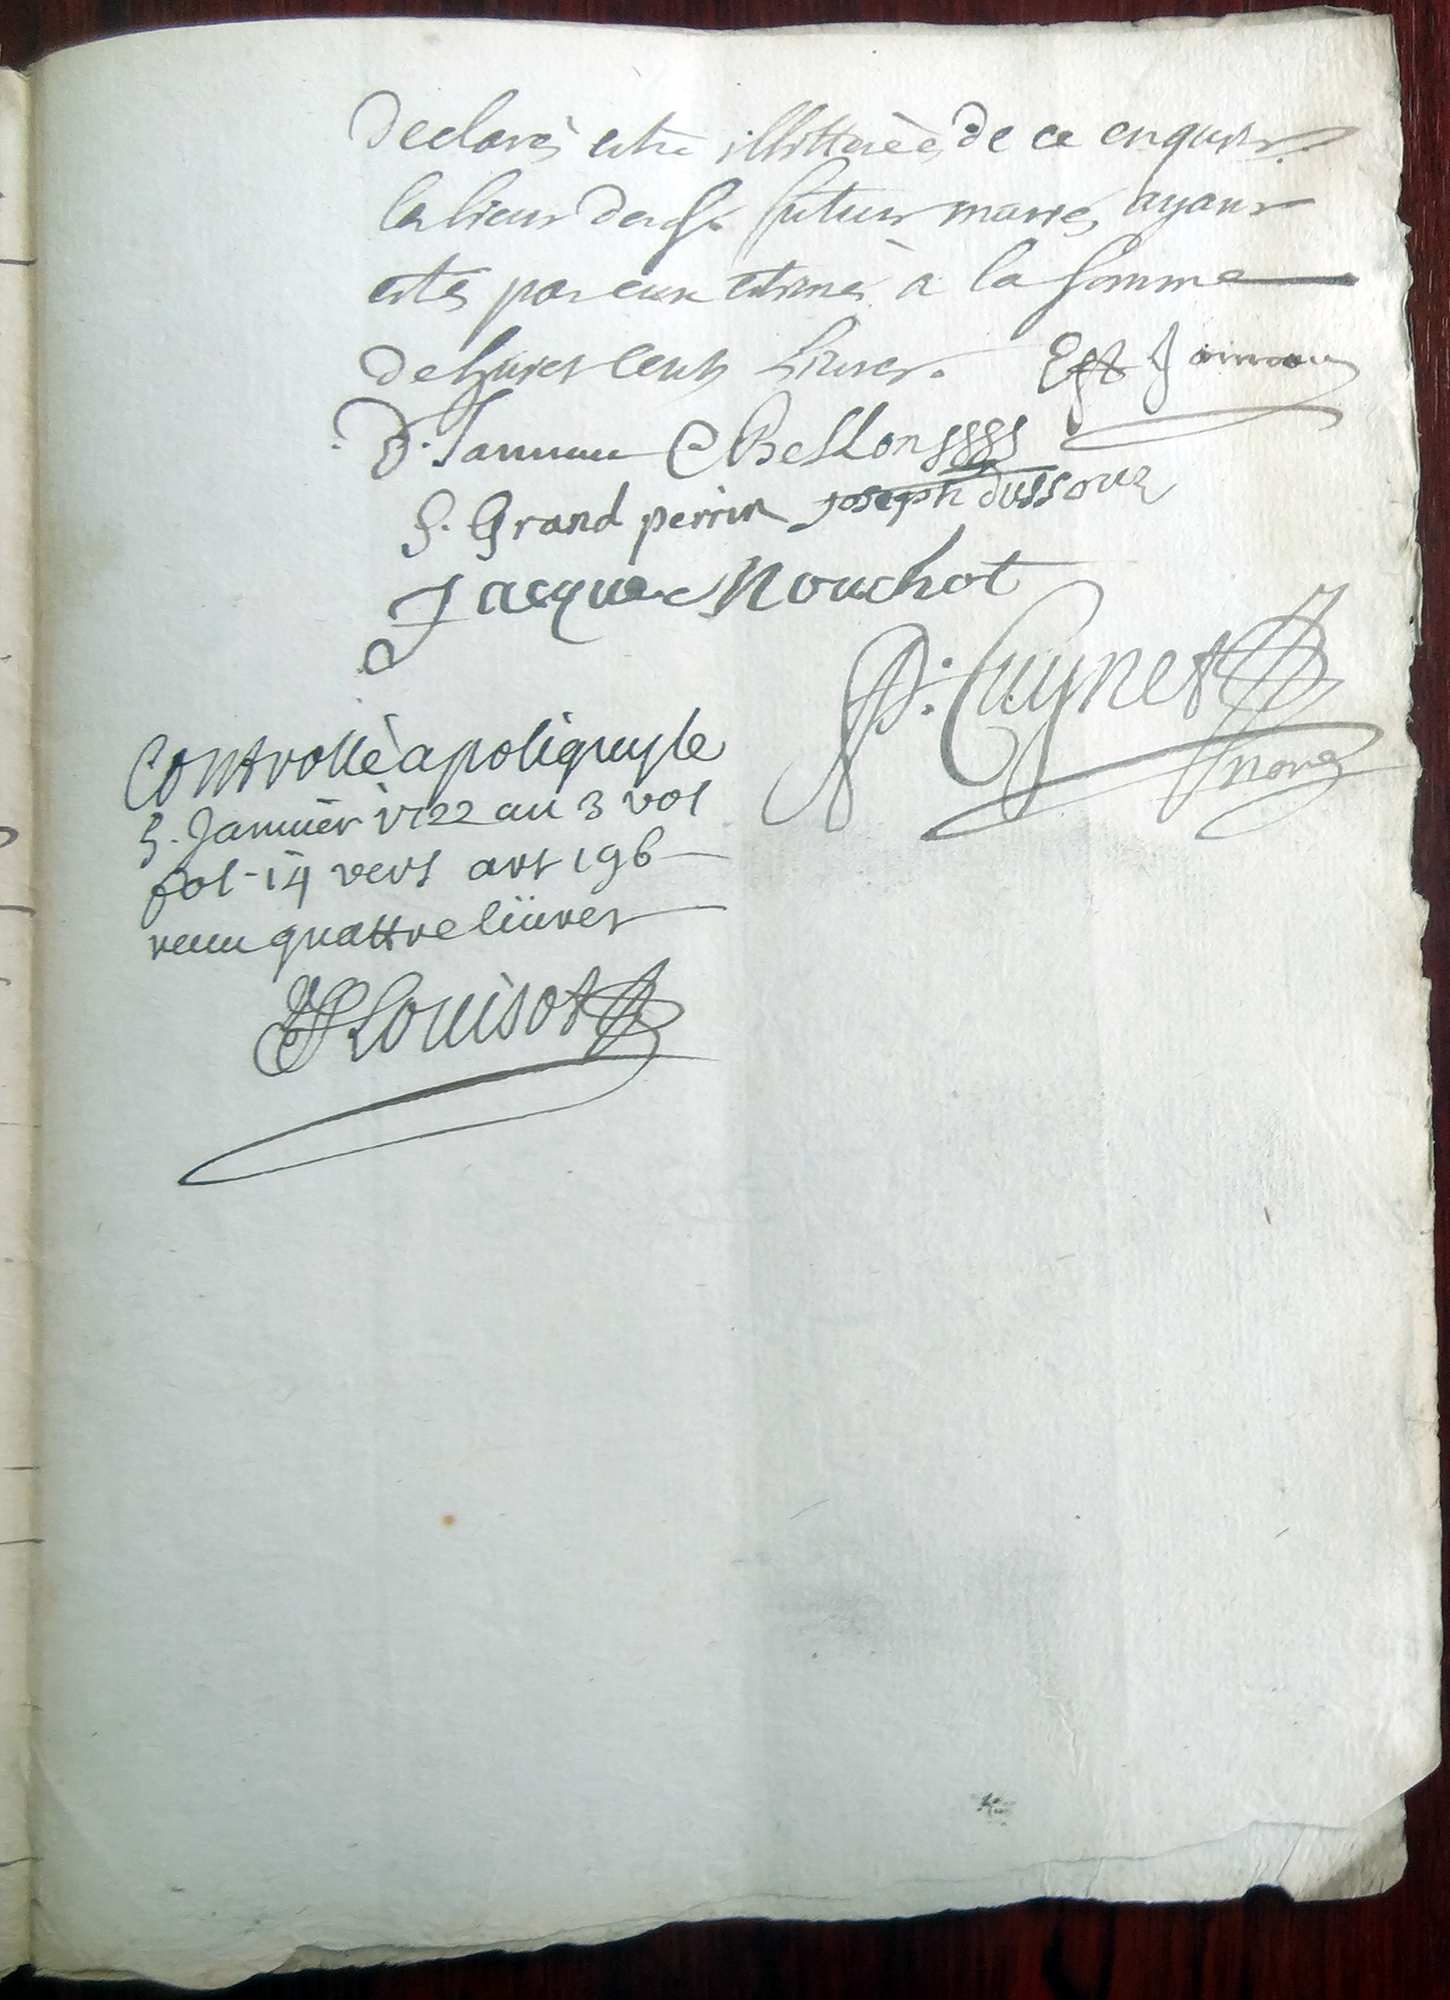 declarés estre illitterées de ce enquis.
les biens desd. futur mariés ayant
estés par eux estimés à la somme
de huict cents livres.
D. Janneau C Bellon
S. Grand perrin Joseph dussouz
Jacque Mouchot
P. Cuynet
nore
Controllé a poligny le
5. Janvier 1722 au 3 vol
fol. 14 vers art 196
receu quattre livres
Louisot